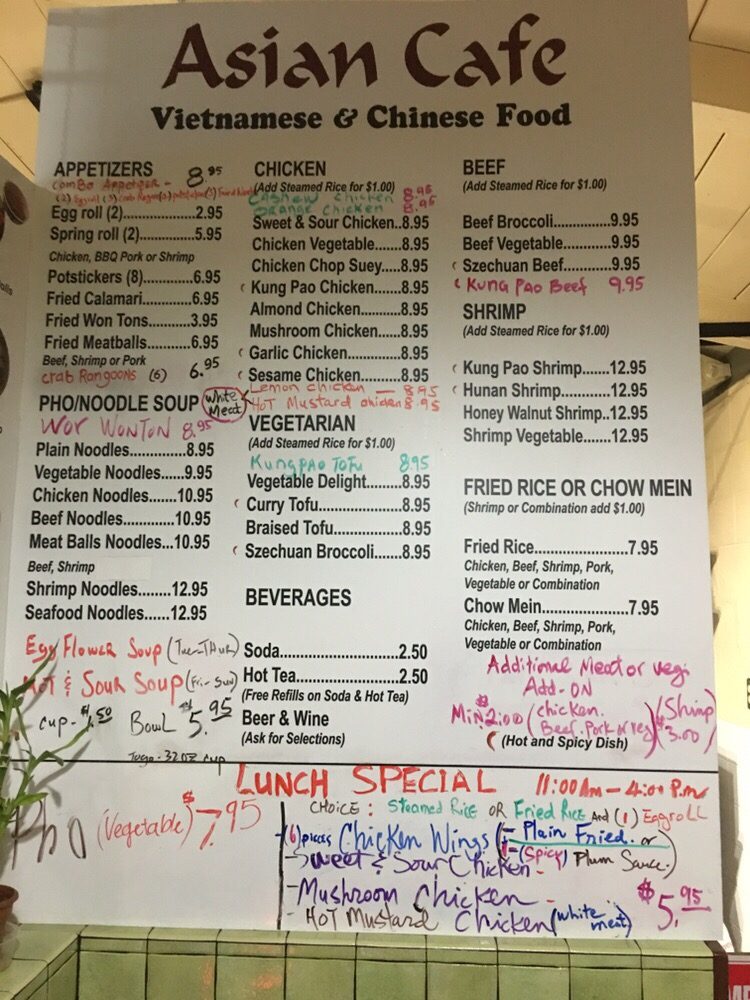 Asian Cafe
Vietnamese & Chinese Food
APPETIZERS
Combo Appetizer - 8.95
Egg roll (2)............2.95
Spring roll (2)..........5.95
Chicken, BBQ Pork or Shrimp
Potstickers (8)...........6.95
Fried Calamari...........6.95
Fried Won Tons........3.95
Fried Meatballs.........6.95
Beef, Shrimp or Pork
Crab Rangoons (6) 6.95
PHO/NOODLE SOUP
Wor Wonton 8.95
Plain Noodles...........8.95
Vegetable Noodles....9.95
Chicken Noodles.....10.95
Beef Noodles...........10.95
Meat Balls Noodles...10.95
Beef, Shrimp
Shrimp Noodles........12.95
Seafood Noodles......12.95
Egg Flower Soup (Tue-Thur)
Hot & Sour Soup (Fri-Sun)
cup - $1.50 Bowl $5.95
Togo - 32 oz cup
CHICKEN
(Add Steamed Rice for $1.00)
Cashew chicken 8.95
Orange Chicken 8.95
Sweet & Sour Chicken..8.95
Chicken Vegetable.....8.95
Chicken Chop Suey....8.95
Kung Pao Chicken......8.95
Almond Chicken.........8.95
Mushroom Chicken.....8.95
Garlic Chicken............8.95
Sesame Chicken........8.95
White Meat
Lemon chicken — 8.95
Hot Mustard chicken 8.95
VEGETARIAN
(Add Steamed Rice for $1.00)
Kung PAO Tofu 8.95
Vegetable Delight.......8.95
Curry Tofu..................8.95
Braised Tofu...............8.95
Szechuan Broccoli.....8.95
BEVERAGES
Soda..........................2.50
Hot Tea.....................2.50
(Free Refills on Soda & Hot Tea)
Beer & Wine
(Ask for Selections)
BEEF
(Add Steamed Rice for $1.00)
Beef Broccoli............9.95
Beef Vegetable..........9.95
Szechuan Beef..........9.95
Kung Pao Beef 9.95
SHRIMP
(Add Steamed Rice for $1.00)
Kung Pao Shrimp.......12.95
Hunan Shrimp............12.95
Honey Walnut Shrimp..12.95
Shrimp Vegetable.......12.95
FRIED RICE OR CHOW MEIN
(Shrimp or Combination add $1.00)
Fried Rice......................7.95
Chicken, Beef, Shrimp, Pork,
Vegetable or Combination
Chow Mein....................7.95
Chicken, Beef, Shrimp, Pork,
Vegetable or Combination
Additional Meat or vegi
Add-ON
Min $2.00 (chicken. Beef. Pork or veg) (Shrimp $3.00)
(Hot and Spicy Dish)
LUNCH SPECIAL 11:00 Am - 4:00 P.m
Pho (Vegetable) $7.95
CHOICE: Steamed Rice OR Fried Rice And (1) Eggroll
(6) pieces Chicken Wings (- Plain Fried. or
- (Spicy) Plum Sauce.)
- Sweet & Sour Chicken -
- Mushroom Chicken -
- HOT Mustard Chicken (white meat) $5.95